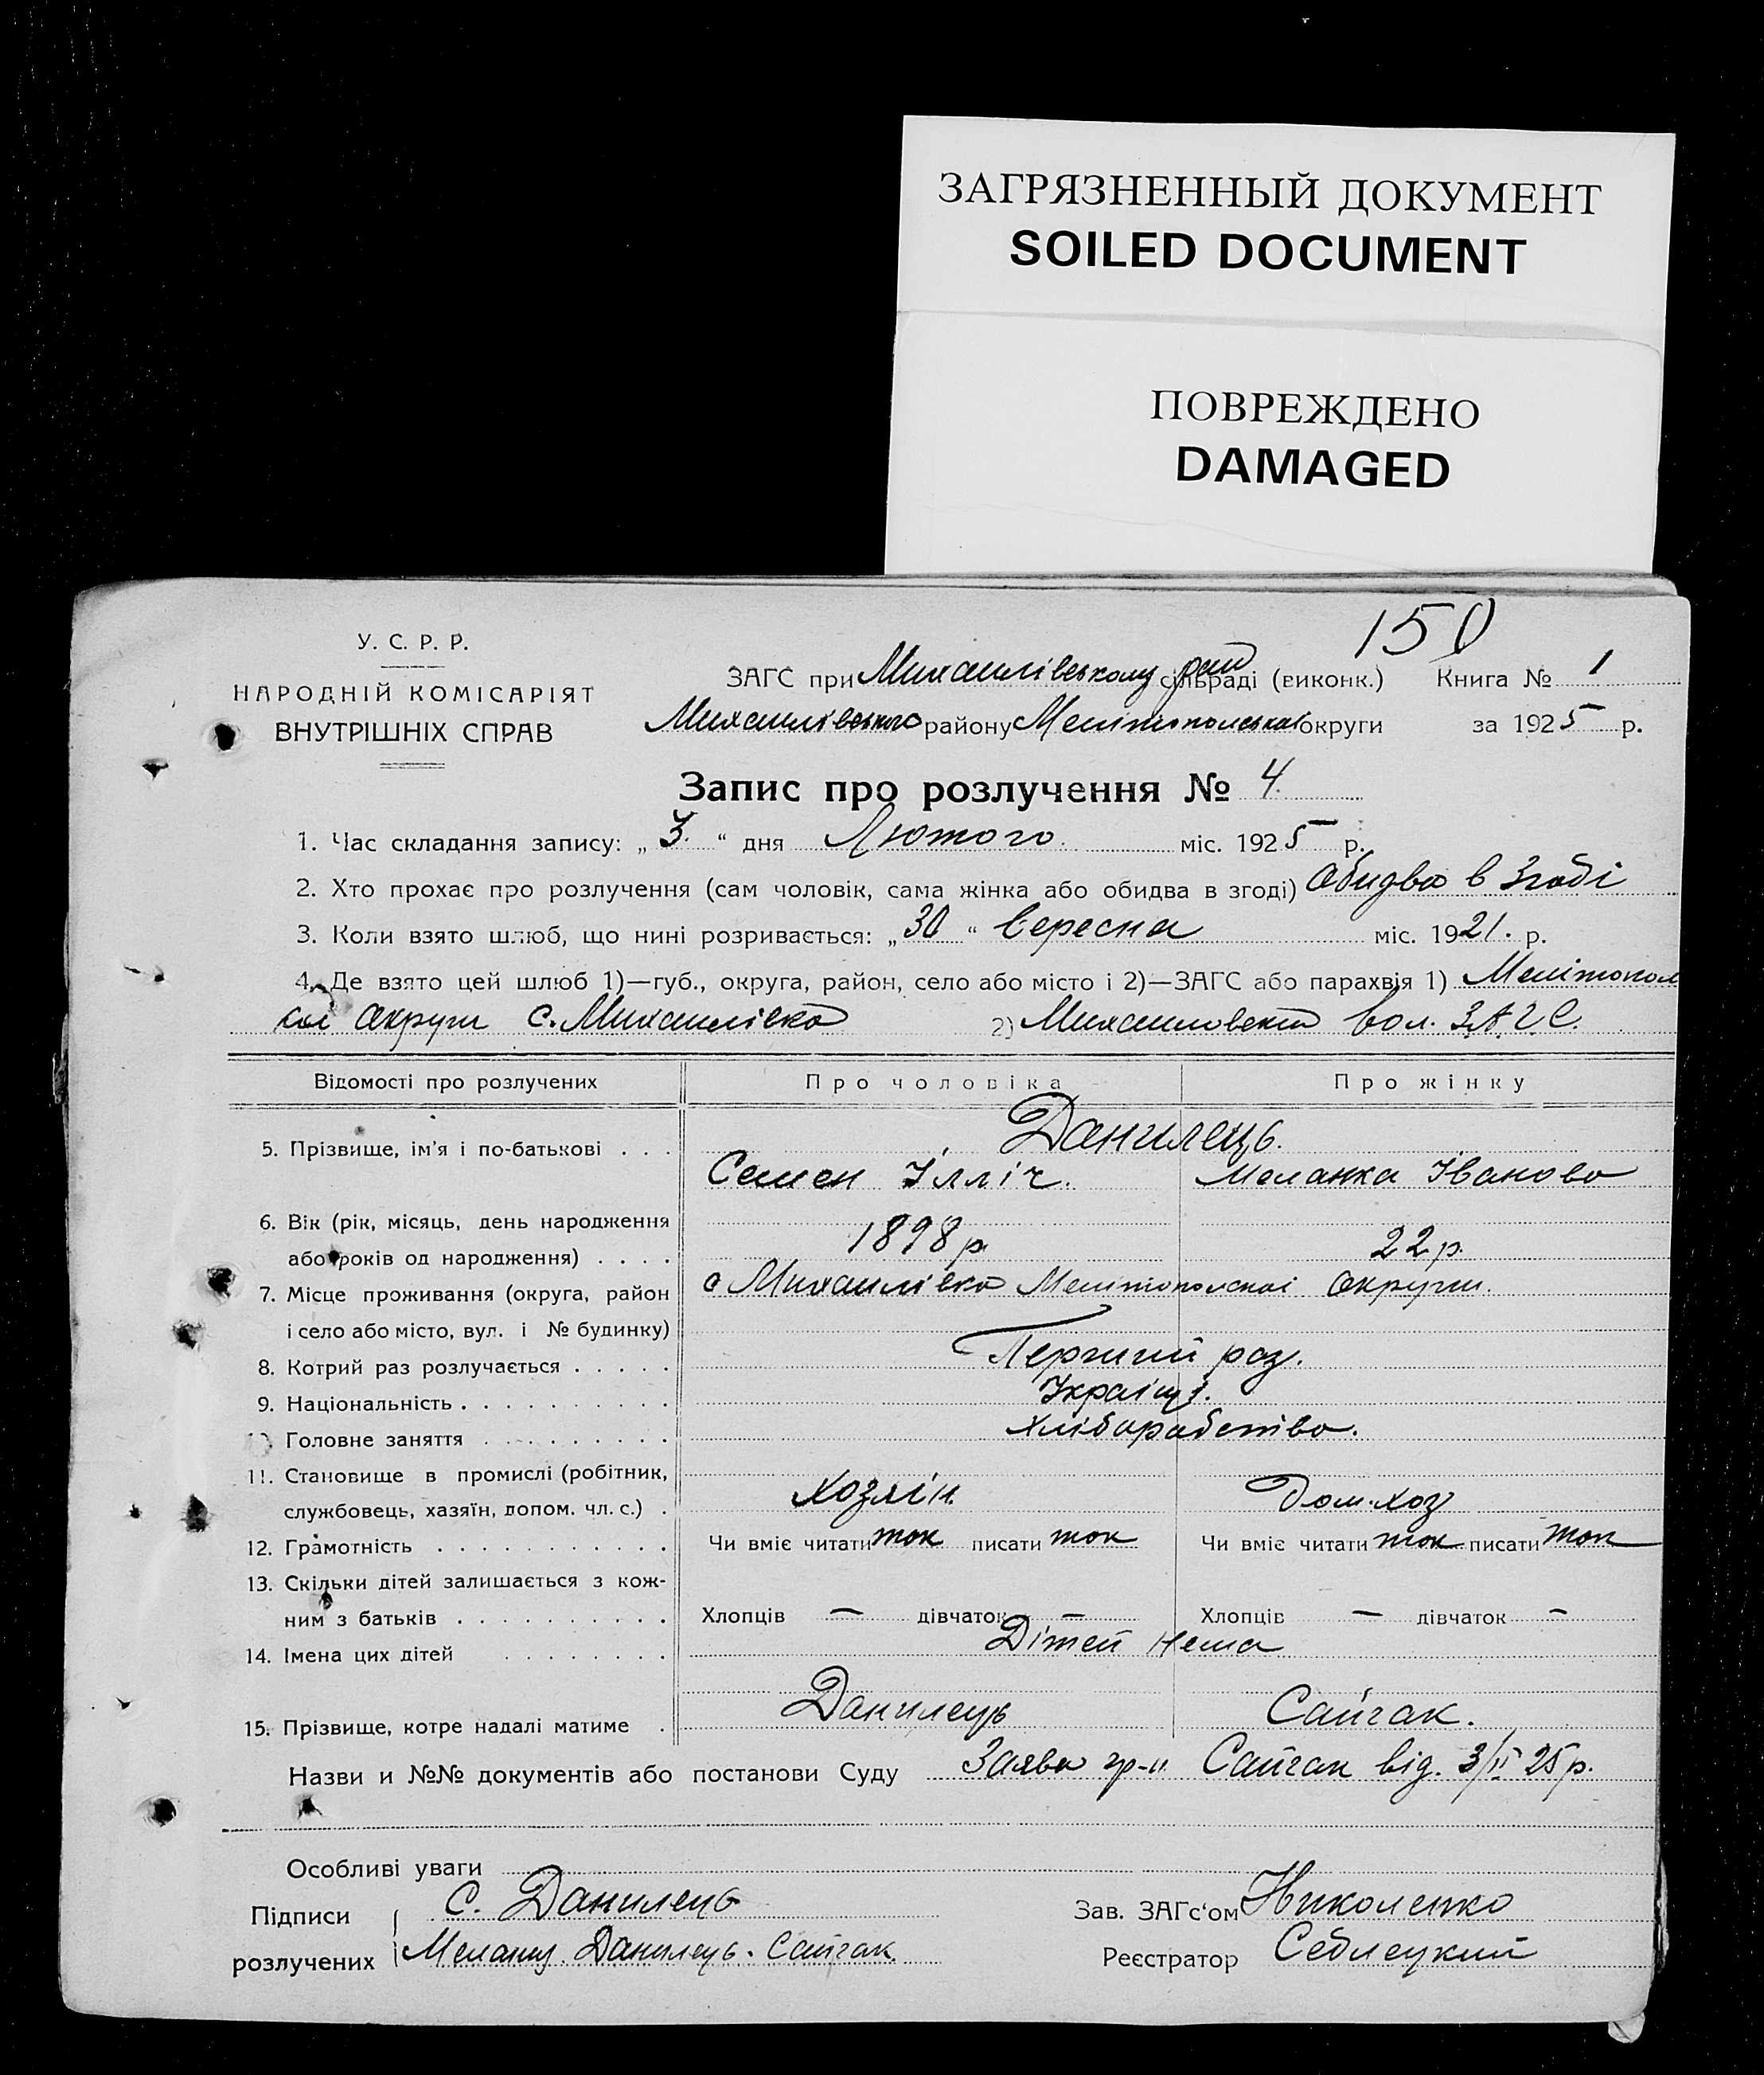 ЗАГРЯЗНЕННЫЙ ДОКУМЕНТ
SOILED DOCUMENT
ПОВРЕЖДЕНО
DAMAGED
150
У. С. Р. Р.
НАРОДНІЙ КОМІСАРІЯТ
ВНУТРІШНІХ СПРАВ
ЗАГС при Михайлівському рай сільраді (виконк.) Книга № 1
Михайлівського району Мелітопольськоі округи за 1925 р.
Запис про розлучення № 4.
1. Час складання запису: „ 3. “ дня Лютого. міс. 1925 р.
2. Хто прохає про розлучення (сам чоловік, сама жінка або обидва в згоді) Обидва в Згоді
3. Коли взято шлюб, що нині розривається: „ 30 “ Вересна міс. 1921. р.
4. Де взято цей шлюб 1)—губ., округа, район, село або місто і 2)—ЗАГС або парахвія 1) Мелітопол
скоі Округи с. Михайлівка 2) Михайловский вол. ЗАГС.
Відомості про розлучених Про чоловіка Про жінку
5. Прізвище, ім'я і по-батькові . . . Данилець.
Семен Ілліч. Меланка Іванова
6. Вік (рік, місяць, день народження
або років од народження) . . . . 1898 р. 22 р.
7. Місце проживання (округа, район с Михайлівка Мелітополскоі Округи.
і село або місто, вул. і № будинку)
8. Котрий раз розлучається . . . . . Перший раз.
9. Національність . . . . . . . . . . Украінці.
Головне заняття . . . . . . . . . Хліборобство.
11. Становище в промислі (робітник,
службовець, хазяїн, допом. чл. с.) . Хозяін. Дом. хоз
12. Грамотність . . . . . . . . . . . Чи вміє читати так писати так Чи вміє читати так писати так
13. Скільки дітей залишається з кож-
ним з батьків . . . . . . . . . . Хлопців — дівчаток — Хлопців — дівчаток —
14. Імена цих дітей . . . . . . . . Дітей нема
15. Прізвище, котре надалі матиме . Данилець Сайгак.
Назви и №№ документів або постанови Суду Заява гр-н Сайгак від. 3/II 25 р.
Особливі уваги
Підписи С. Данилець Зав. ЗАГс‘ом Николенко
розлучених Данилець. Сайгак Реєстратор